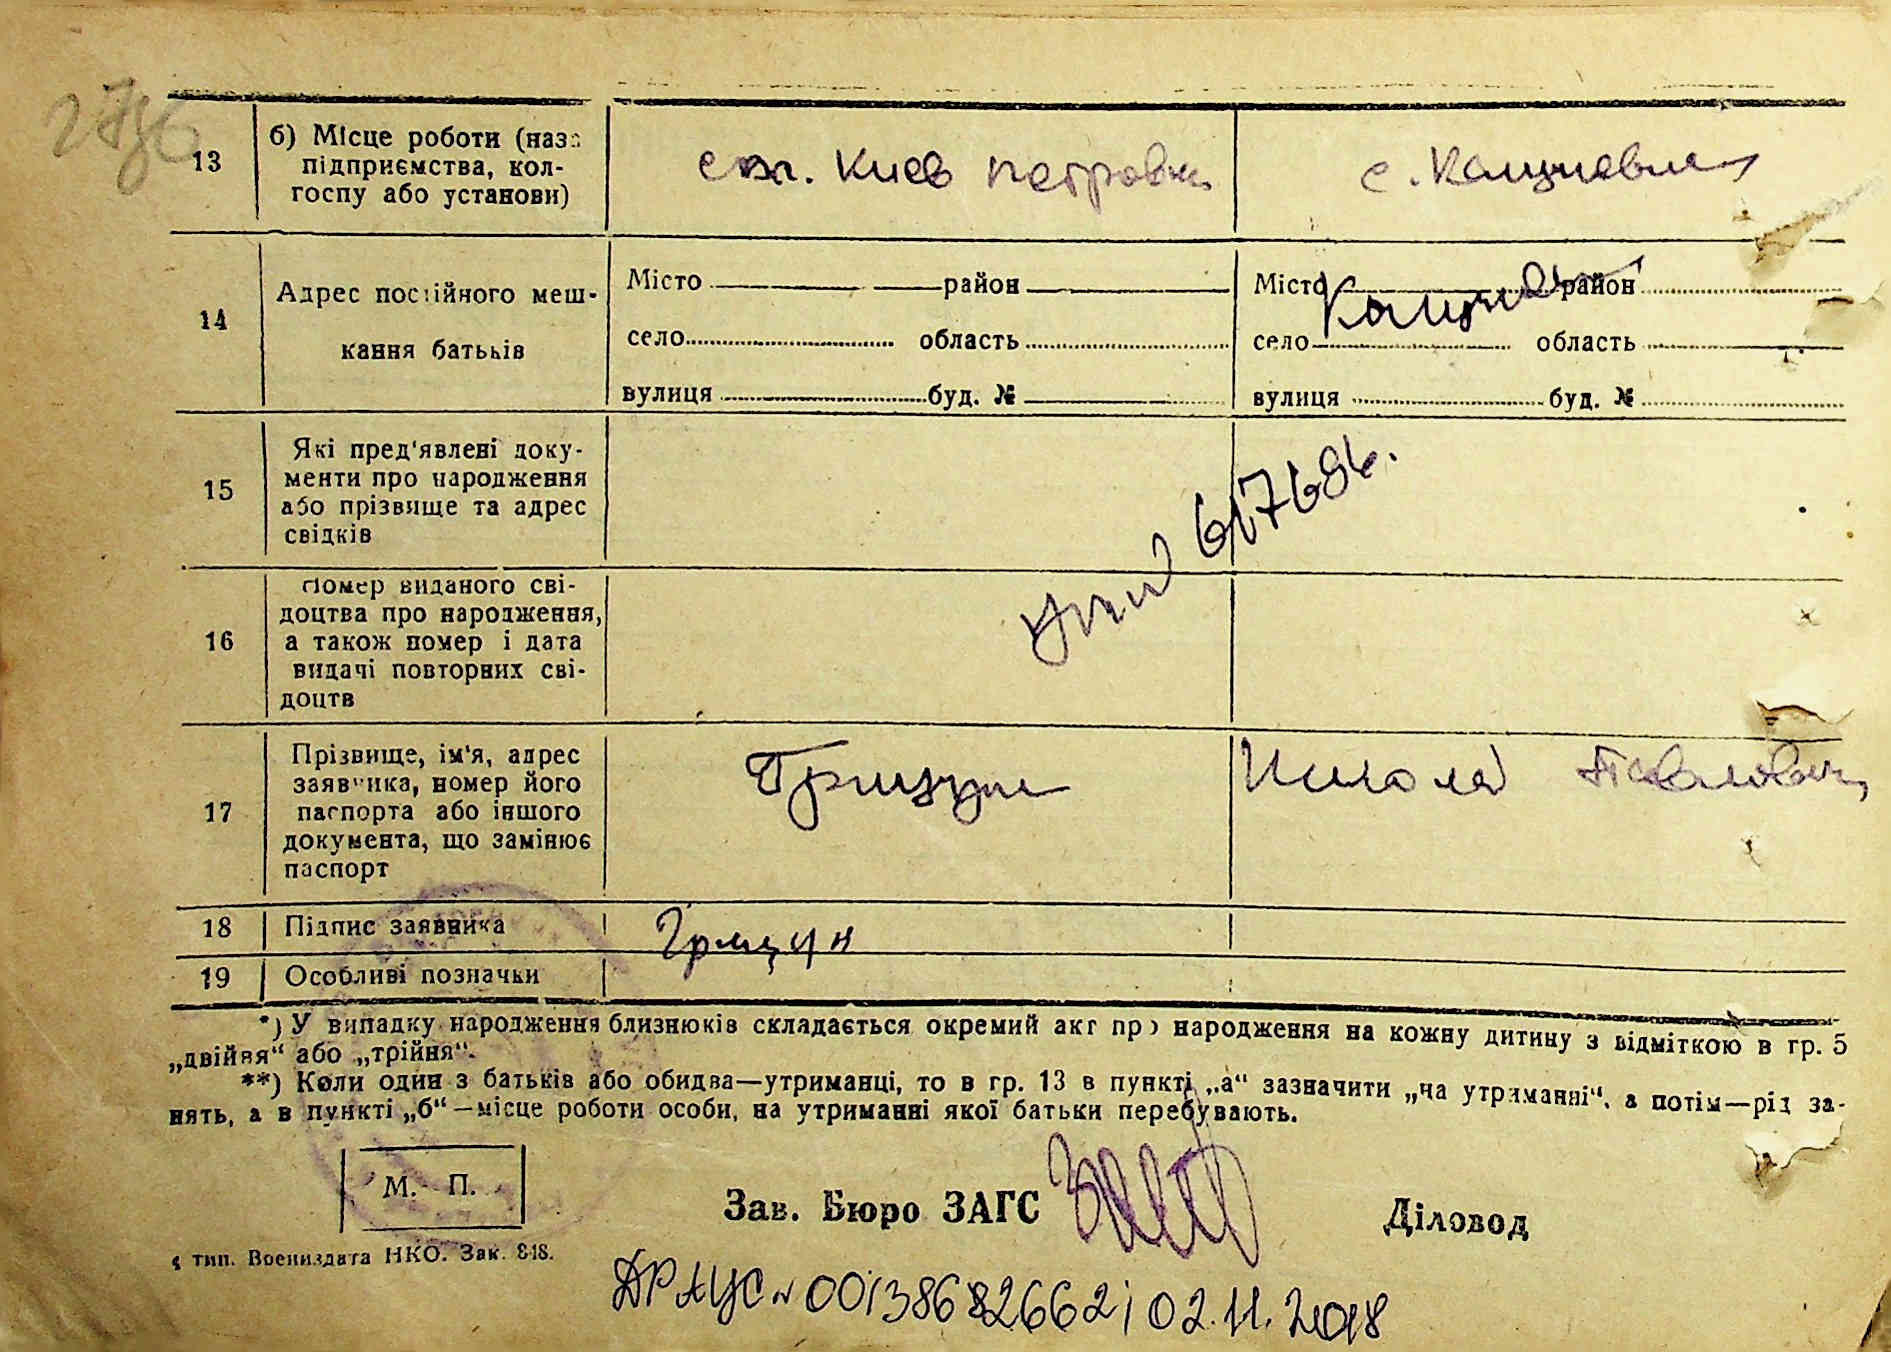 13
б) Місце роботи (назв
підприємства, кол-
госпу або установи)
ст. Киев Петровка
14
Адрес постійного меш-
кання батьків
Місто район
село область
вулиця буд. №
Місто район
село область
вулиця буд. №
15
Які пред'явлені доку-
менти про народження
або прізвище та адрес
свідків
617686.
16
Номер виданого сві-
доцтва про народження,
а також номер і дата
видачі повторних сві-
доцтв
17
Прізвище, ім'я, адрес
заявника, номер його
паспорта або іншого
документа, що замінює
паспорт
Грицун Никола Павлович
18 Підпис заявника Грицун
19 Особливі позначки
*) У випадку народження близнюків складається окремий акт про народження на кожну дитину з відміткою в гр. 5
„двійня“ або „трійня“.
**) Коли один з батьків або обидва—утриманці, то в гр. 13 в пункті „а“ зазначити „на утриманні“, а потім—рід за-
нять, а в пункті „б“—місце роботи особи, на утриманні якої батьки перебувають.
М. П.
Зав. Бюро ЗАГС Діловод
тип. Воениздата НКО. Зак. 848.
ДРАЦС № 00138682662 02.11.2018